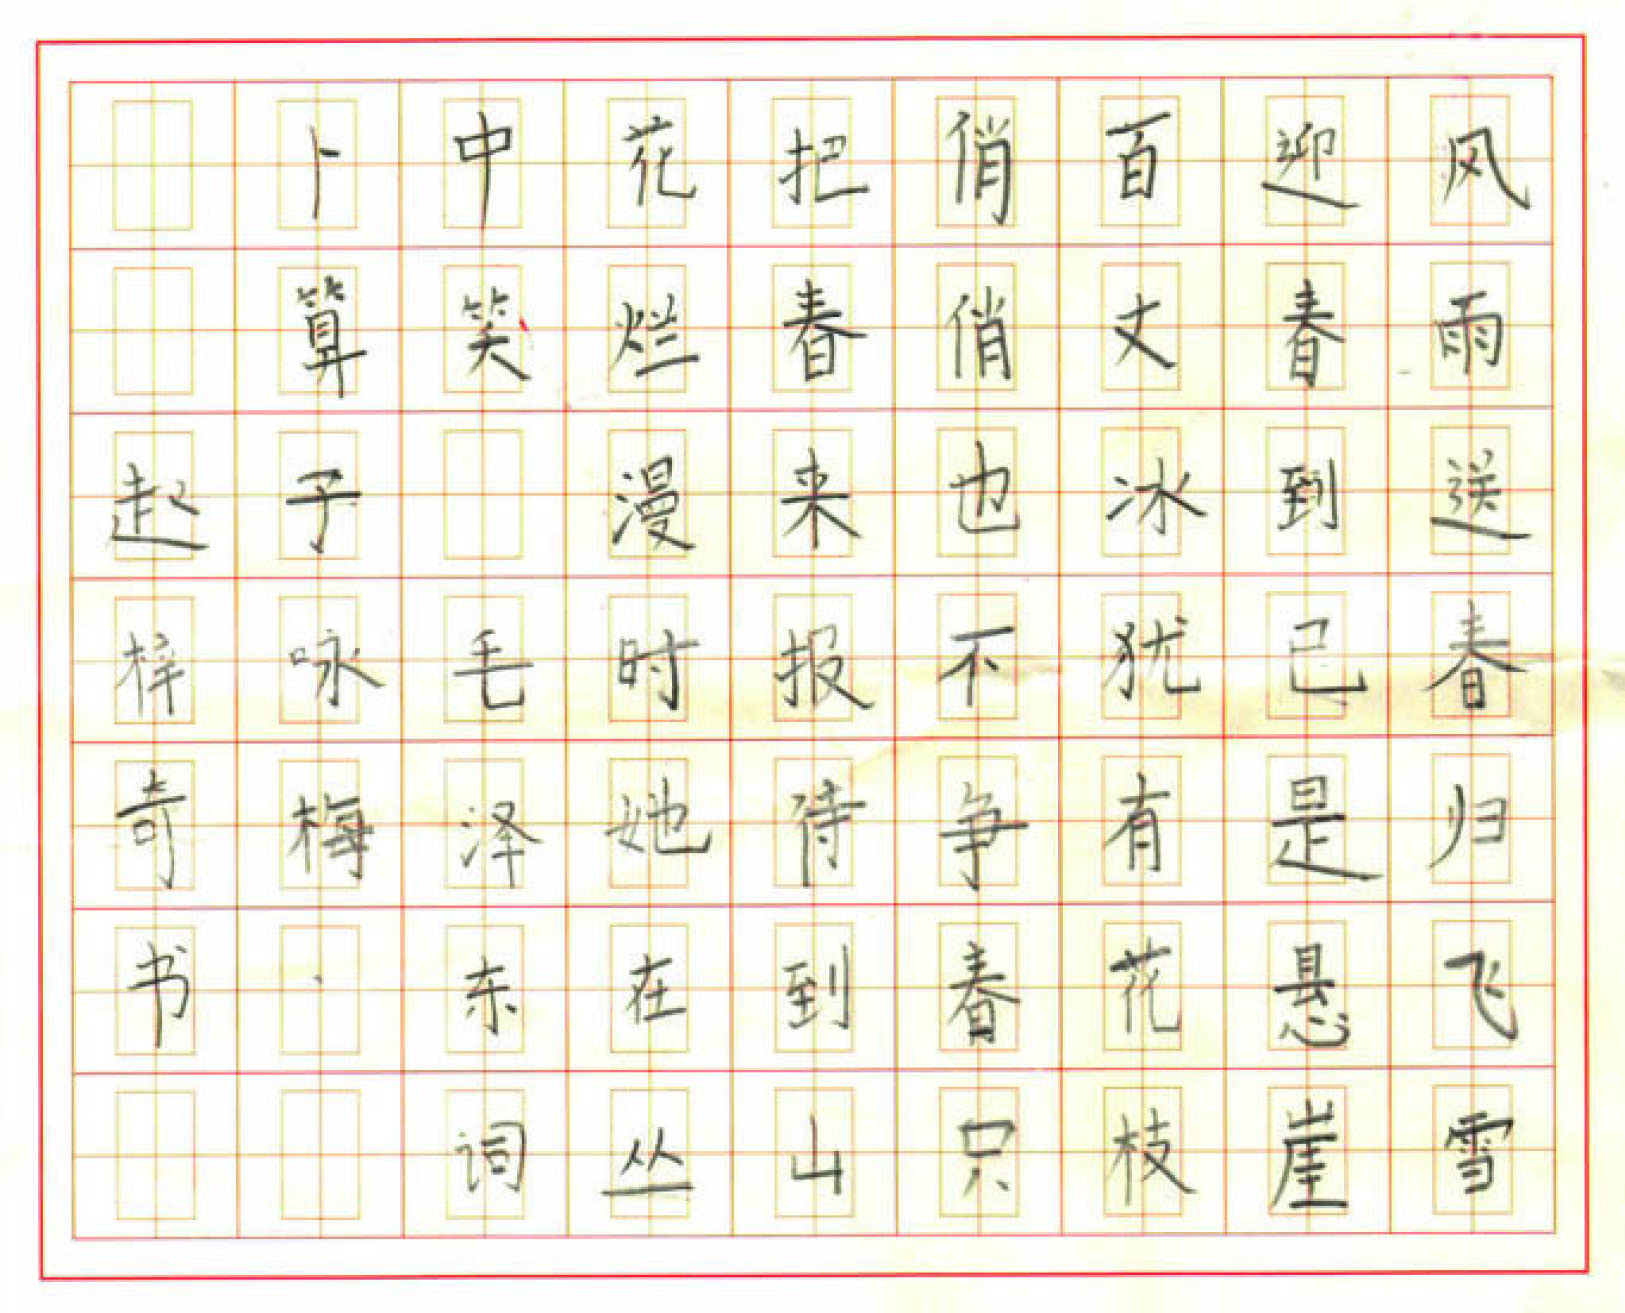 风雨送春归飞雪
迎春到已是悬崖
百丈冰犹有花枝
俏俏也不争春只
把春来报待到山
花烂漫时她在丛
中笑 毛泽东词
卜算子咏梅·
赵梓奇书